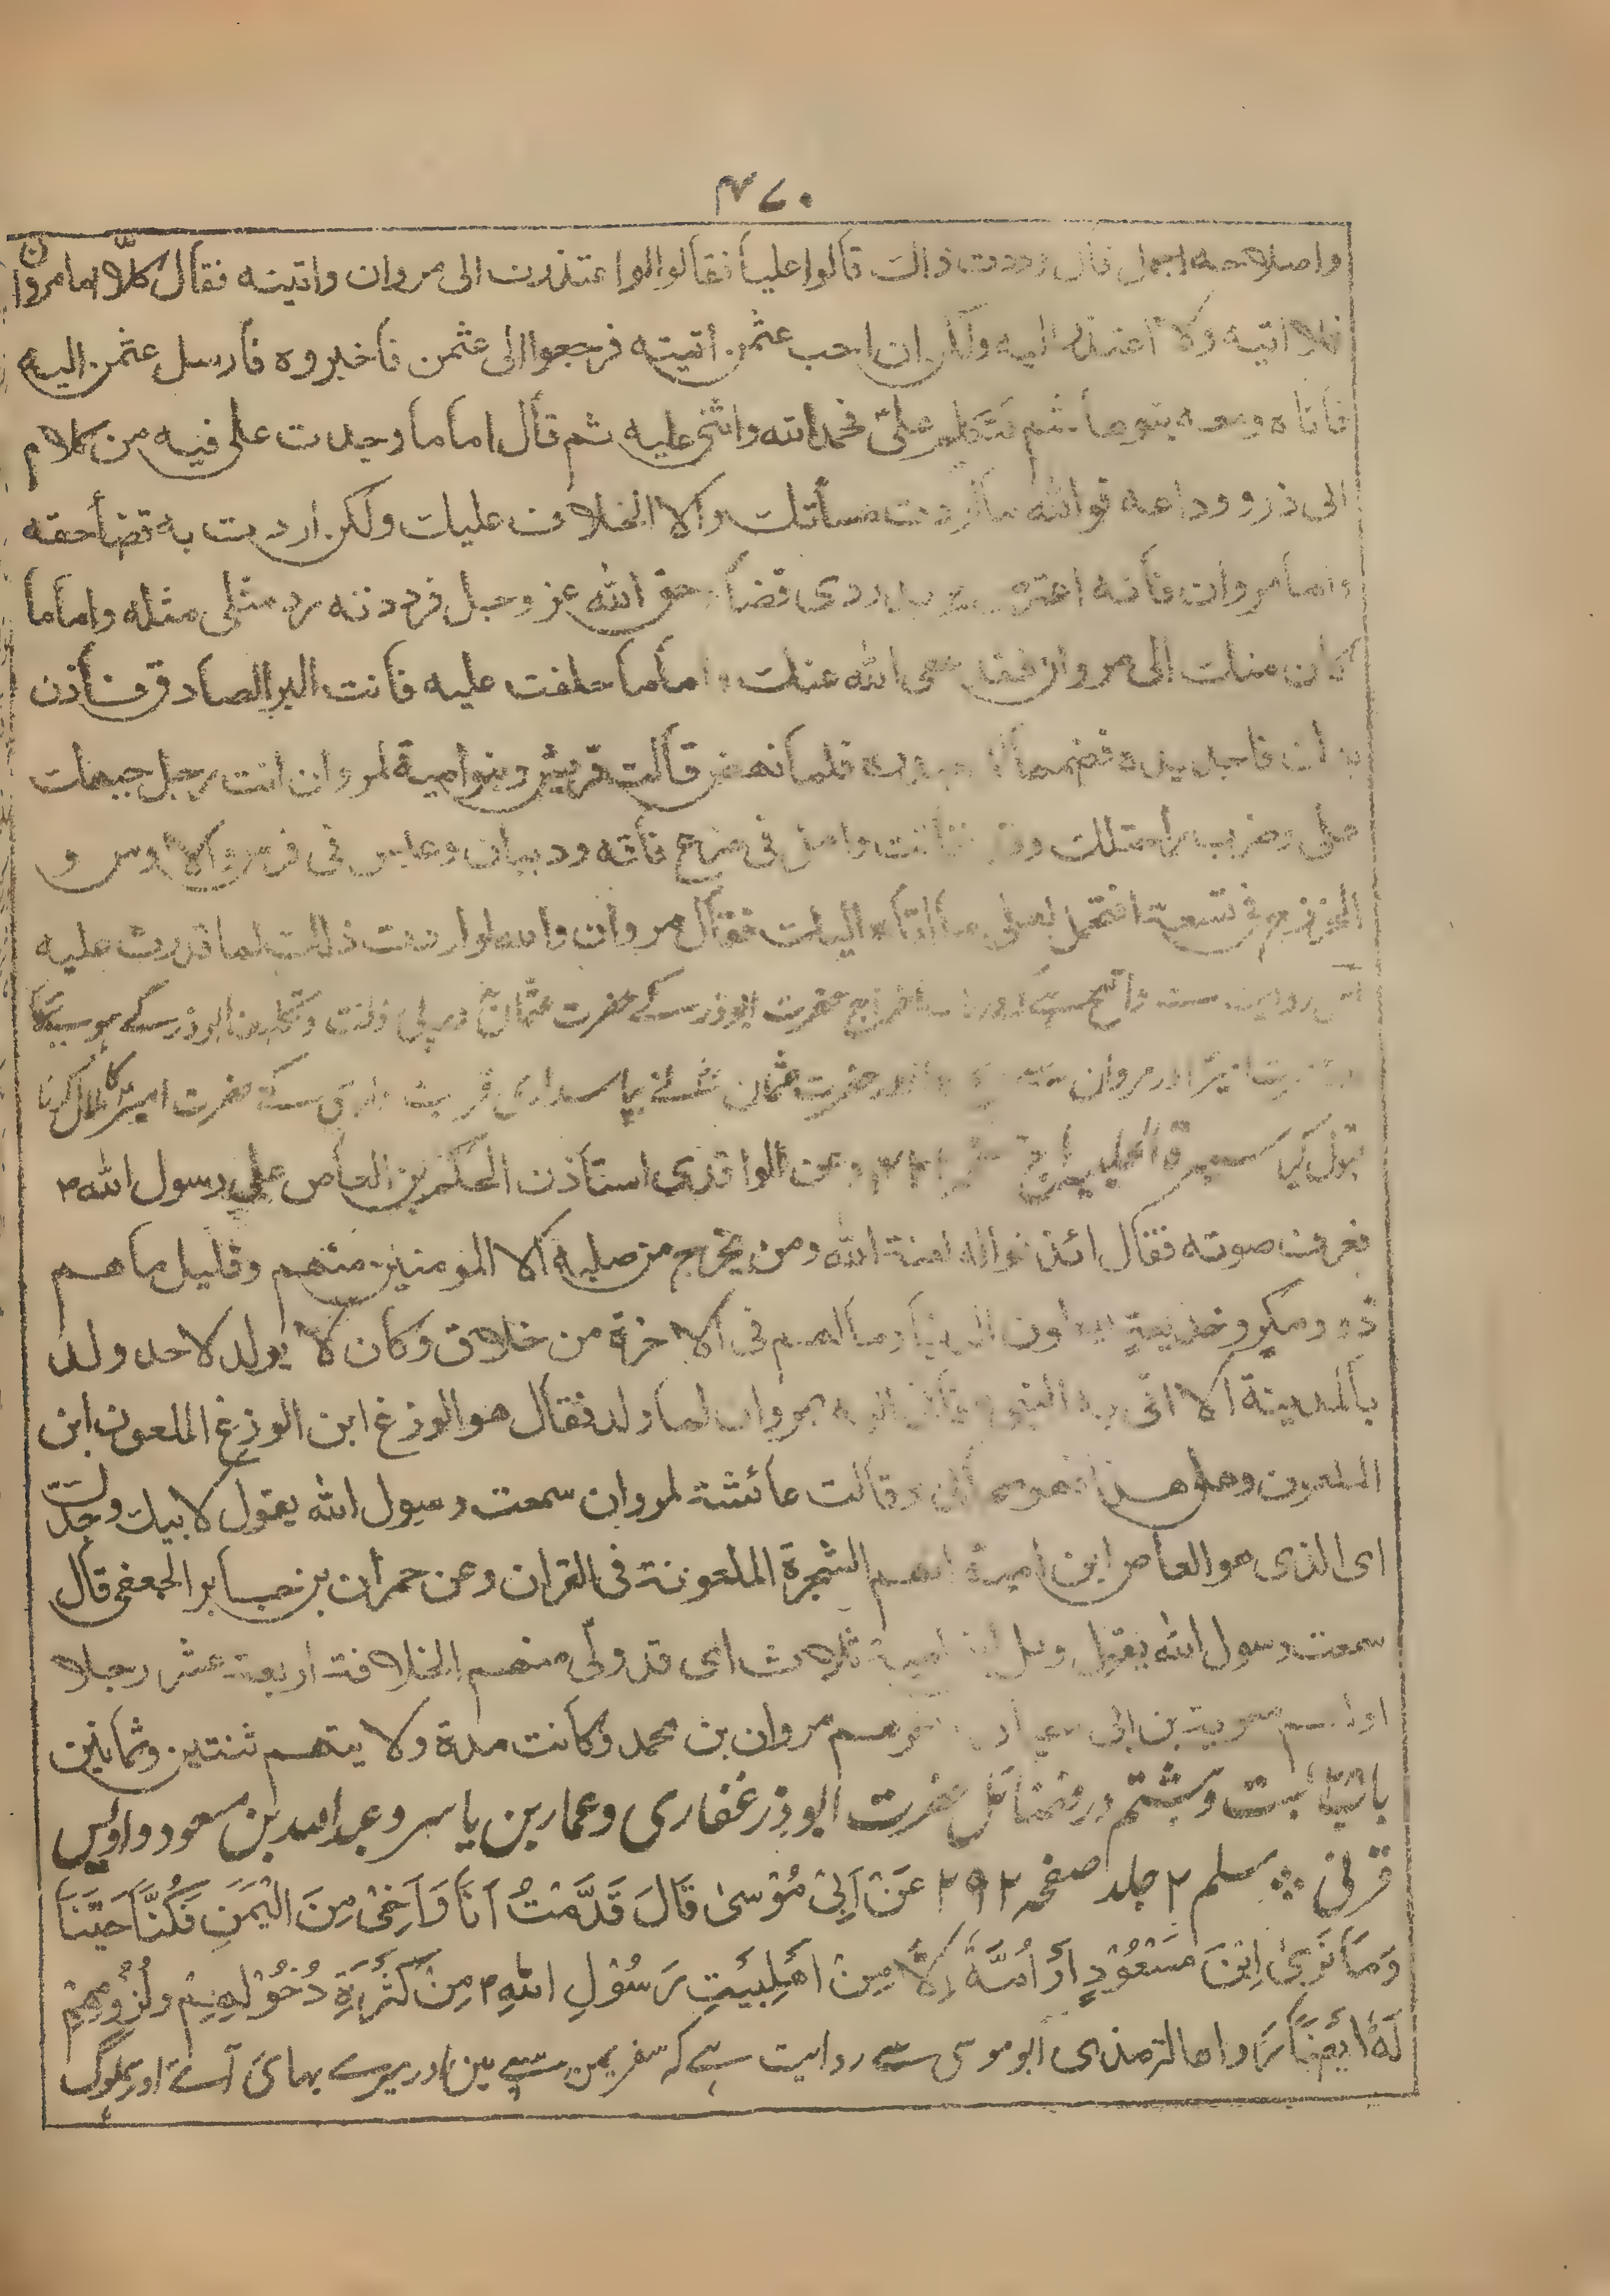 ۴۷۰
واصلاحه اجمل قال وددت ذالك قالوا عليا فقالوا لو اعتذرت الى مروان واتيته فقال كلّا اما مروان
فلا اتيه ولا اعتذر اليه ولكن ان احب عثمن أتيته فرجعوا الى عثمن فاخبروه فأرسل عثمن اليه
فأتاه ومعه بنو هاشم فتكلم علىّ فحمد الله واثنى عليه ثم قال اما ما وجدت على فيه من كلام
ابى ذر ووداعه فوالله ما اردت مسأتك ولا الخلاف عليك ولكن اردت به قضأ حقه
واما مروان فأنه اعترض يريد ردى قضأ حق الله عز وجل فرددته رد مثلى مثله واما ما
كان منك الى مروان فقد عفى الله عنك واما ما حلفت عليه فأنت البر الصادق فأذن
يدك فأخذ يده فضمها الى صدره فلما نهض قالت قريش وبنو امية لمروان انت رجل جبهك
على وضرب راحلتك وائل فى ضرع ناقة وذبيان وعبس فى فرس والاوس و
الخزرج فى تسعة افتحمل لعلى ما اتاه اليك فقال مروان والله لو اردت ذالك لما قدرت عليه
اس روایت سے واضح ہے اخراج حضرت ابوذر کے حضرت عثمانؓ
اور مروان حضرت عثمان نے پاسداری کے حضرت امیرؑ کا ملال کرنا
قبول کیا سيرة الحلبيه وعن الواقدى استأذن الحكم بن العاص على رسول الله ۳
فعرف صوته فقال ائذنوا له لعنة الله ومن يخرج من صلبه الا المومنين منهم وقليل ما هم
ذو ومكر وخديعة يعطون الدنيا وما لهم فى الاخرة من خلاق وكان لا يولد لاحد ولد
بالمدينة الا اتى به النبى فأتى اليه بمروان لما ولد فقال هو الوزغ ابن الوزغ الملعون ابن
الملعون وعلى هذا فهو صحابى وقالت عائشة لمروان سمعت رسول الله يقول لابيك وجدك
اى الذى هو العاص ابن امية انهم الشجرة الملعونة فى القران وعن حمران بن جابر الجعفى قال
سمعت رسول الله يقول ويل لبنى امية ثلاث اى قد ولّى منهم الخلافة اربعة عشر رجلا
اولهم معوية بن ابى سفيان واخرهم مروان بن محمد وكانت مدة ولايتهم ثنتين وثمانين
باب بست وہشتم در فضائل حضرت ابوذر غفاری و عمار بن یاسر و عبداللہ بن مسعود و اویس
قرنی ؞ مسلم ۲ جلد صفحہ ۲۹۲ عَنْ اَبِیْ مُوْسىٰ قَالَ قَدَّمْتُ اَنَا وَاَخِیْ مِنَ الْيَمَنِ فَكُنَّا حِيْنًا
وَمَا نَرىٰ اِبْنَ مَسْعُوْدٍ اَوْ اُمَّهٗ اِلَّا مِنْ اَهْلِبَيْتِ رَسُوْلِ اللهِ ۳ مِنْ كَثْرَةِ دُخُوْلِهِمْ وَلُزُوْمِهِمْ
لَهٗ ايْضًا رواها الترمذى ابوموسى سے روایت ہے کہ سفر یمن سے مین اور میرے بہائ آے اور ہملوگ